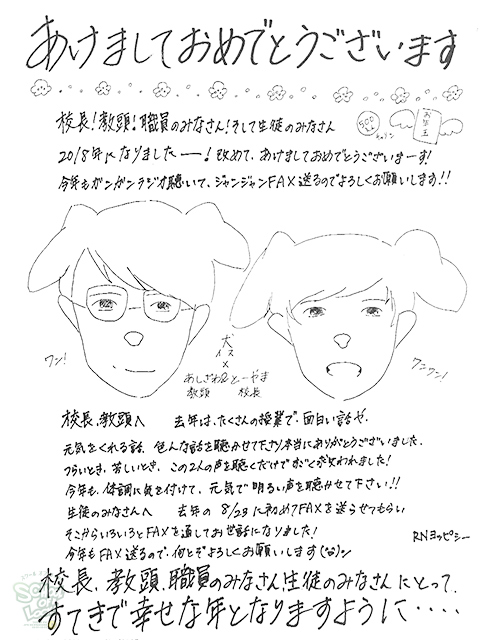 あけましておめでとうございます
校長！教頭！職員のみなさん！そして生徒のみなさん
500
お年玉
2018年になりましたーー！改めて、あけましておめでとうございまーす！
今年もガンガンラジオ聴いて、ジャンジャンFAX送るのでよろしくお願いします！！
ワン！
犬
イヌ
×
あしざわ&とーやま
教頭 校長
ワンワン！
校長、教頭へ 去年は、たくさんの授業で、面白い話や、
元気をくれる話、色んな話を聴かせて下さり本当にありがとうございました。
つらいとき、苦しいとき、この2人の声を聴くだけで心が救われました！
今年も、体調に気を付けて、元気で明るい声を聴かせて下さい！！
生徒のみなさんへ 去年の 8/23に初めてFAXを送らせてもらい
そこからいろいろとFAXを通してお世話になりました！
RNヨッピシー
今年もFAX送るので、何とぞよろしくお願いします
校長、教頭、職員のみなさん、生徒のみなさんにとって、
すてきで幸せな年となりますように・・・・